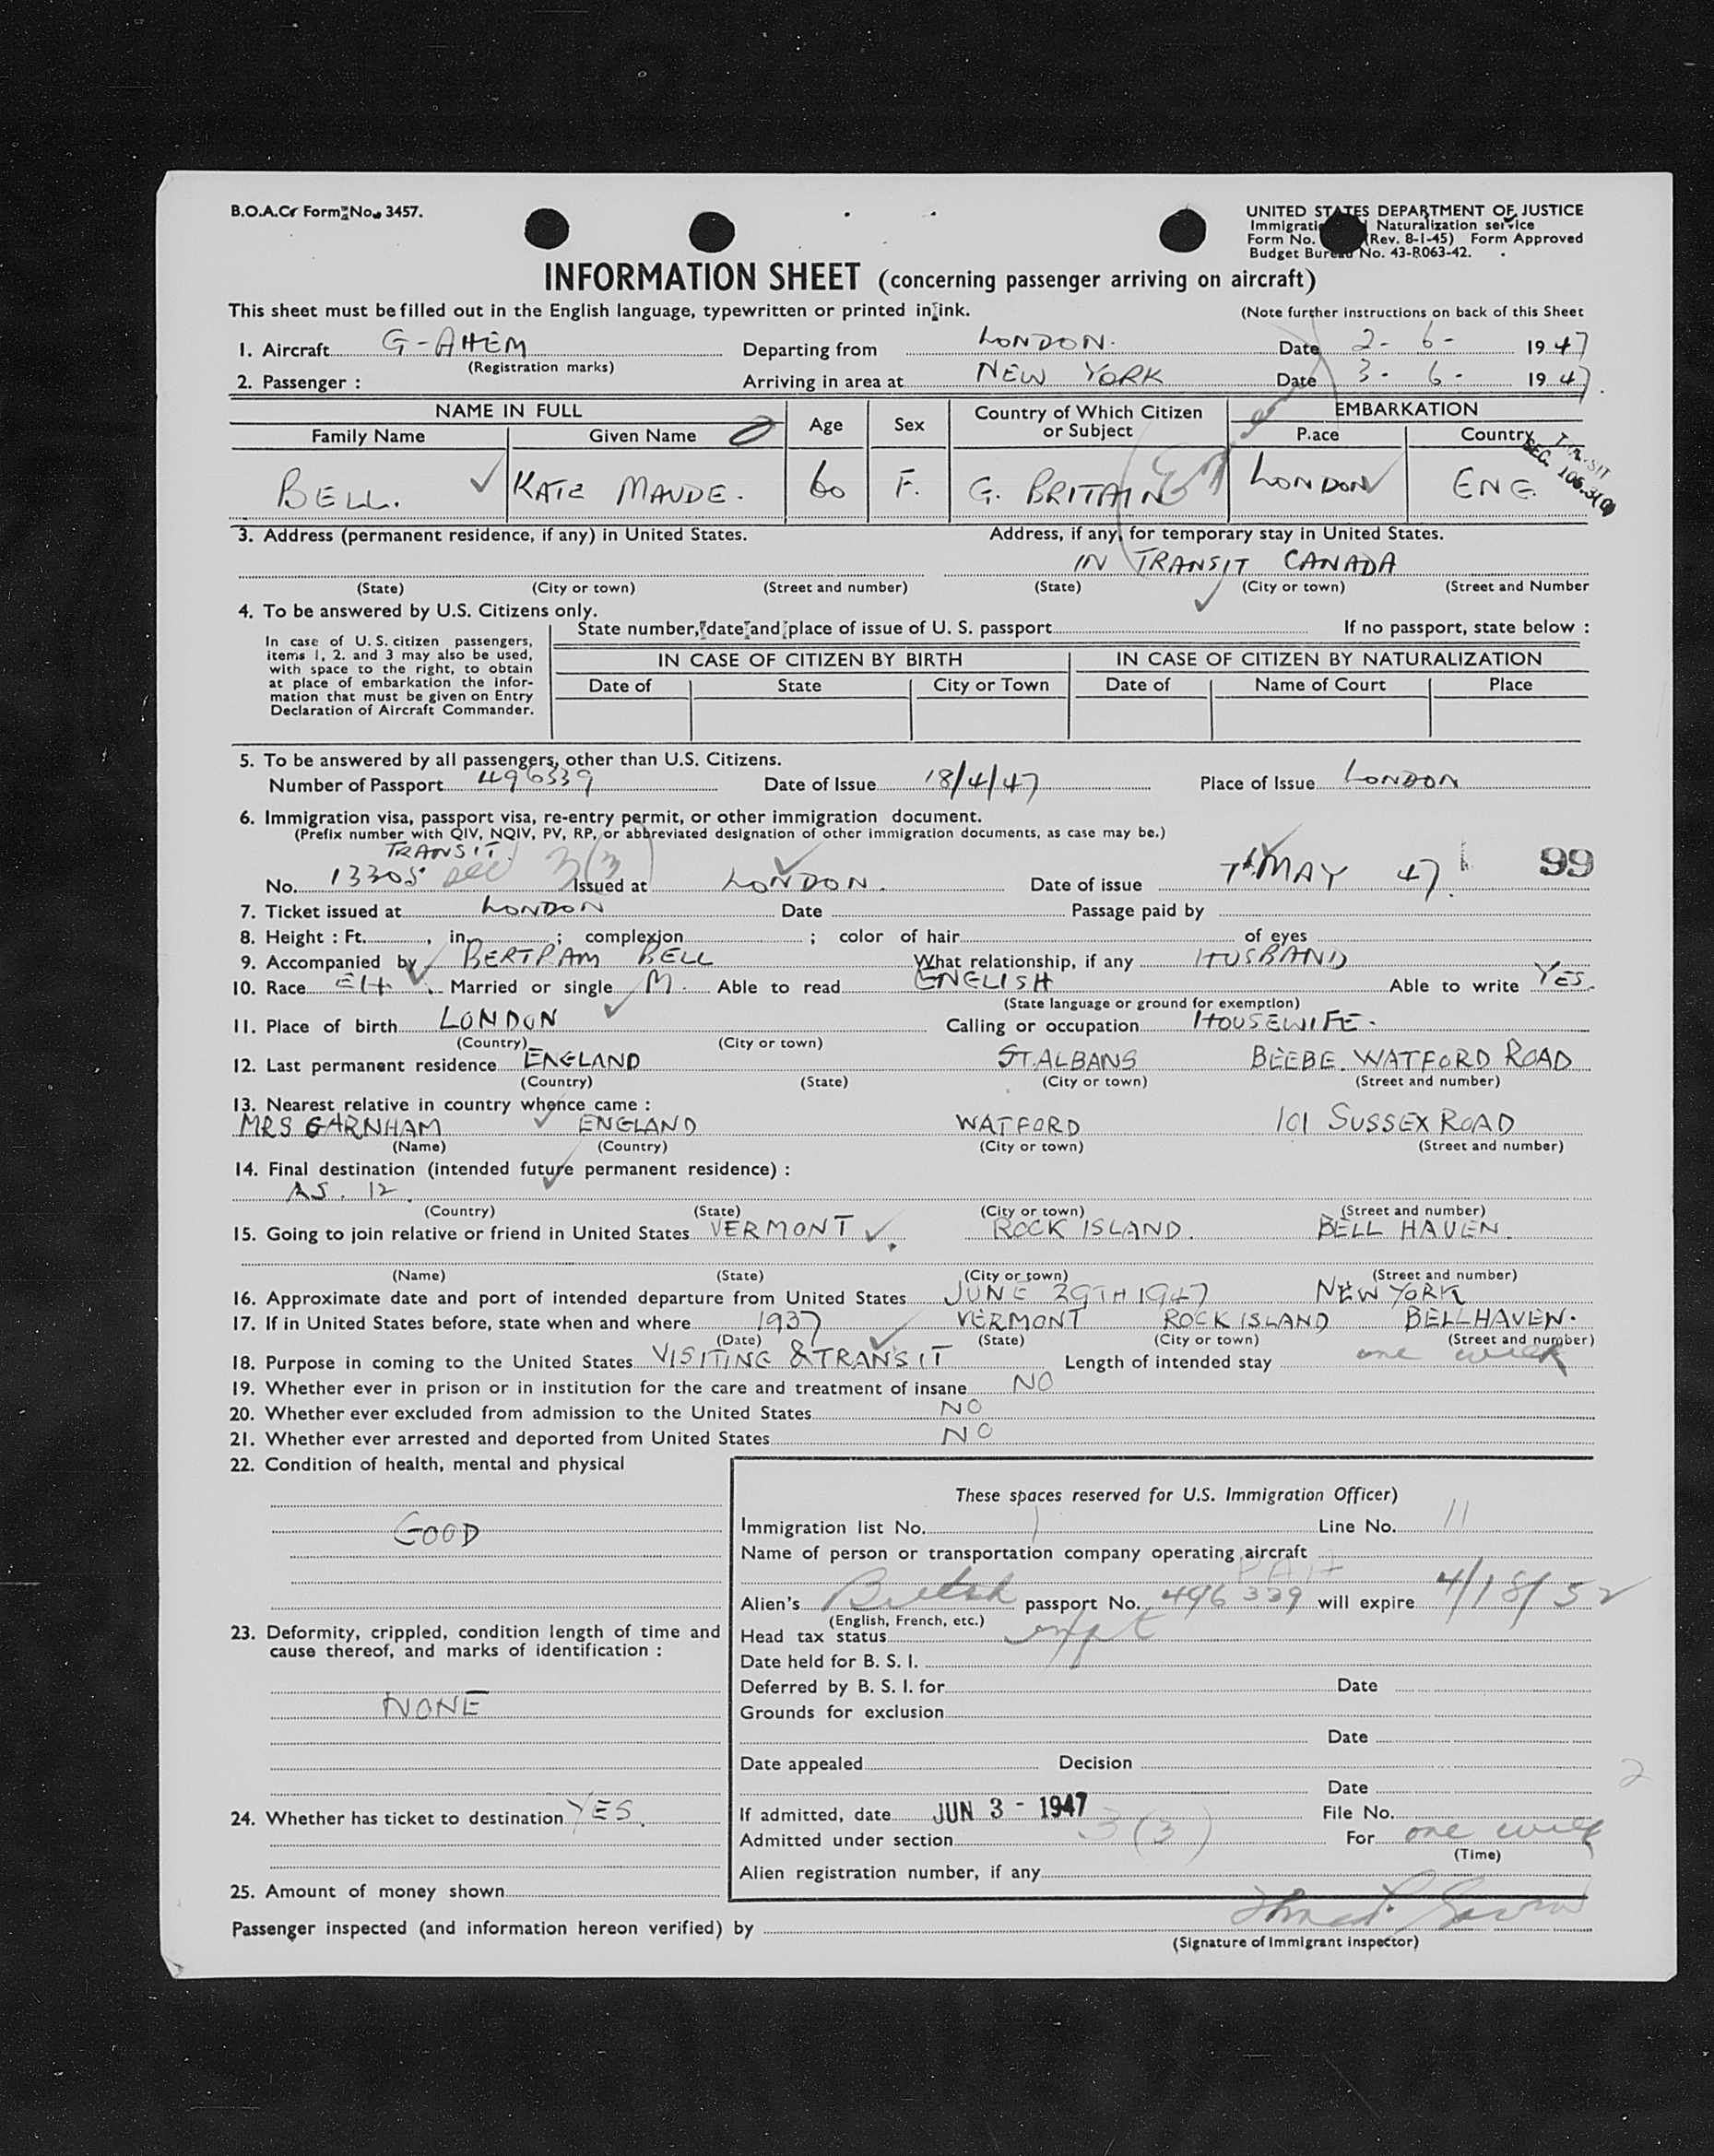 B.O.A.C. Form No. 3457.
UNITED STATES DEPARTMENT OF JUSTICE
Immigrati Naturalization service
Form No. (Rev. 8-1-45) Form Approved
Budget Bureau No. 43-R063-42.
INFORMATION SHEET (concerning passenger arriving on aircraft)
This sheet must be filled out in the English language, typewritten or printed in ink. (Note further instructions on back of this Sheet
1. Aircraft G-AHEM Departing from LONDON. Date 2-6- 1947
(Registration marks)
2. Passenger : Arriving in area at NEW YORK Date 3-6- 1947.
NAME IN FULL Age Sex Country of Which Citizen or Subject EMBARKATION
Family Name Given Name P.ace Country
TRANSIT
SEC.
BELL. KATE MAUDE. 60 F. G. BRITAIN LONDON ENG.
3. Address (permanent residence, if any) in United States. Address, if any, for temporary stay in United States.
IN TRANSIT CANADA
(State) (City or town) (Street and number) (State) (City or town) (Street and Number
4. To be answered by U.S. Citizens only.
In case of U.S. citizen passengers, items 1, 2. and 3 may also be used, with space to the right, to obtain at place of embarkation the information that must be given on Entry Declaration of Aircraft Commander.
State number, date and place of issue of U. S. passport If no passport, state below :
IN CASE OF CITIZEN BY BIRTH IN CASE OF CITIZEN BY NATURALIZATION
Date of State City or Town Date of Name of Court Place
5. To be answered by all passengers, other than U.S. Citizens.
Number of Passport 496339 Date of Issue 18/4/47 Place of Issue LONDON
6. Immigration visa, passport visa, re-entry permit, or other immigration document.
(Prefix number with QIV, NQIV, PV, RP, or abbreviated designation of other immigration documents, as case may be.)
TRANSIT.
No. 13305 sec 3(3) Issued at LONDON. Date of issue MAY 47. 99
7. Ticket issued at LONDON Date Passage paid by
8. Height : Ft. , in. ; complexion ; color of hair of eyes
9. Accompanied by BERTRAM BELL What relationship, if any HUSBAND
10. Race Married or single M. Able to read ENGLISH Able to write YES.
(State language or ground for exemption)
11. Place of birth LONDON Calling or occupation HOUSEWIFE.
(Country) (City or town)
12. Last permanent residence ENGLAND ST. ALBANS BEEBE. WATFORD ROAD
(Country) (State) (City or town) (Street and number)
13. Nearest relative in country whence came :
MRS GARNHAM ENGLAND WATFORD 101 SUSSEX ROAD
(Name) (Country) (City or town) (Street and number)
14. Final destination (intended future permanent residence) :
AS. 12.
(Country) (State) (City or town) (Street and number)
15. Going to join relative or friend in United States VERMONT ROCK ISLAND. BELL HAVEN.
(Name) (State) (City or town) (Street and number)
16. Approximate date and port of intended departure from United States JUNE 29TH 1947 NEW YORK
17. If in United States before, state when and where 1937 VERMONT ROCK ISLAND BELLHAVEN.
(Date) (State) (City or town) (Street and number)
18. Purpose in coming to the United States VISITING & TRANSIT Length of intended stay one week
19. Whether ever in prison or in institution for the care and treatment of insane NO
20. Whether ever excluded from admission to the United States NO
21. Whether ever arrested and deported from United States NO
22. Condition of health, mental and physical
GOOD
23. Deformity, crippled, condition length of time and
cause thereof, and marks of identification :
NONE
24. Whether has ticket to destination YES.
25. Amount of money shown
These spaces reserved for U.S. Immigration Officer)
Immigration list No. 1 Line No. 11
Name of person or transportation company operating aircraft
Alien's British passport No. 496339 will expire 4/18/52
(English, French, etc.)
Head tax status
Date held for B. S. I.
Deferred by B. S. I. for Date
Grounds for exclusion
Date
Date appealed Decision
2
Date
If admitted, date JUN 3 - 1947 File No.
Admitted under section 3(3) For one week
(Time)
Alien registration number, if any
Passenger inspected (and information hereon verified) by
(Signature of Immigrant inspector)